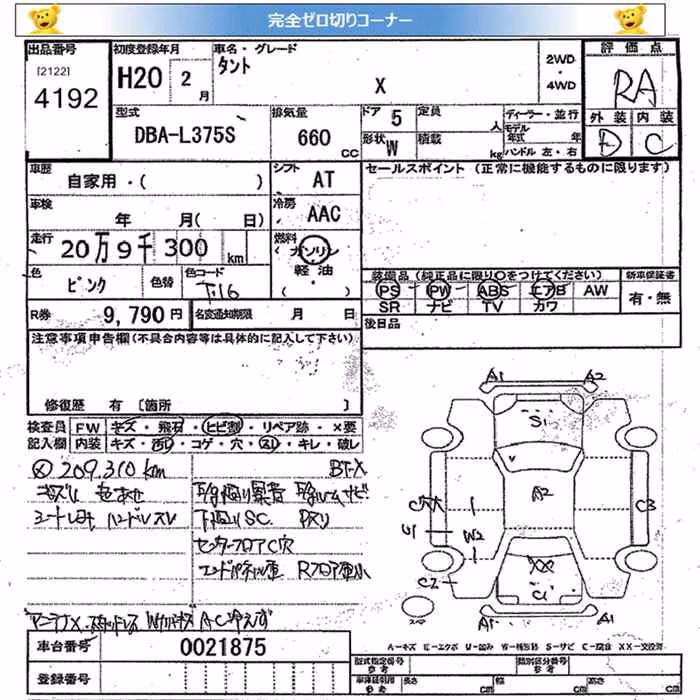 完全ゼロ切りコーナー
出品番号 初度登録年月 車名・グレード 評価点
[2122]
4192 H20 2月 タント X 2WD・4WD RA
型式 排気量 ドア 定員 ディーラー・並行 外装 内装
DBA-L375S 660 CC 5 人 モデル年式 年 D C
形状 W 積載 kg ハンドル 左・右
車歴 シフト セールスポイント(正常に機能するものに限ります)
自家用・( ) AT
車検 冷房
年 月( 日) AAC
走行 燃料
20万9千300km ガソリン
色 色替 色コード 軽油・( )
ピンク T16
装備品(純正品に限り○をつけてください) 新車保証書
PS PW ABS エアB AW 有・無
SR ナビ TV カワ
R券 9,790円 名変通知期限 月 日
後日品
注意事項申告欄(不具合内容等は具体的に記入して下さい)
修復歴 有 〔箇所 〕
検査員 FW キズ・飛石・ヒビ割・リペア跡・×要
記入欄 内装 キズ・汚レ・コゲ・穴・スレ・キレ・破レ
209,310km BT-X
キズU 色あせ
シートヨゴレ ハンドルスレ 下廻りSC
センターフロアC穴
エンドパネル
AC冷えず
A1 A2
S1
A2
U1 W2 C3
C2
XX
C1
A1 A1
A=キズ E=エクボ U=凹み W=補修跡 S=サビ C=腐食 XX=交換済
車台番号 0021875
登録番号
型式指定番号 参考 類別区分番号 参考
車庫証明用 参考 長さ cm 幅 cm 高さ cm